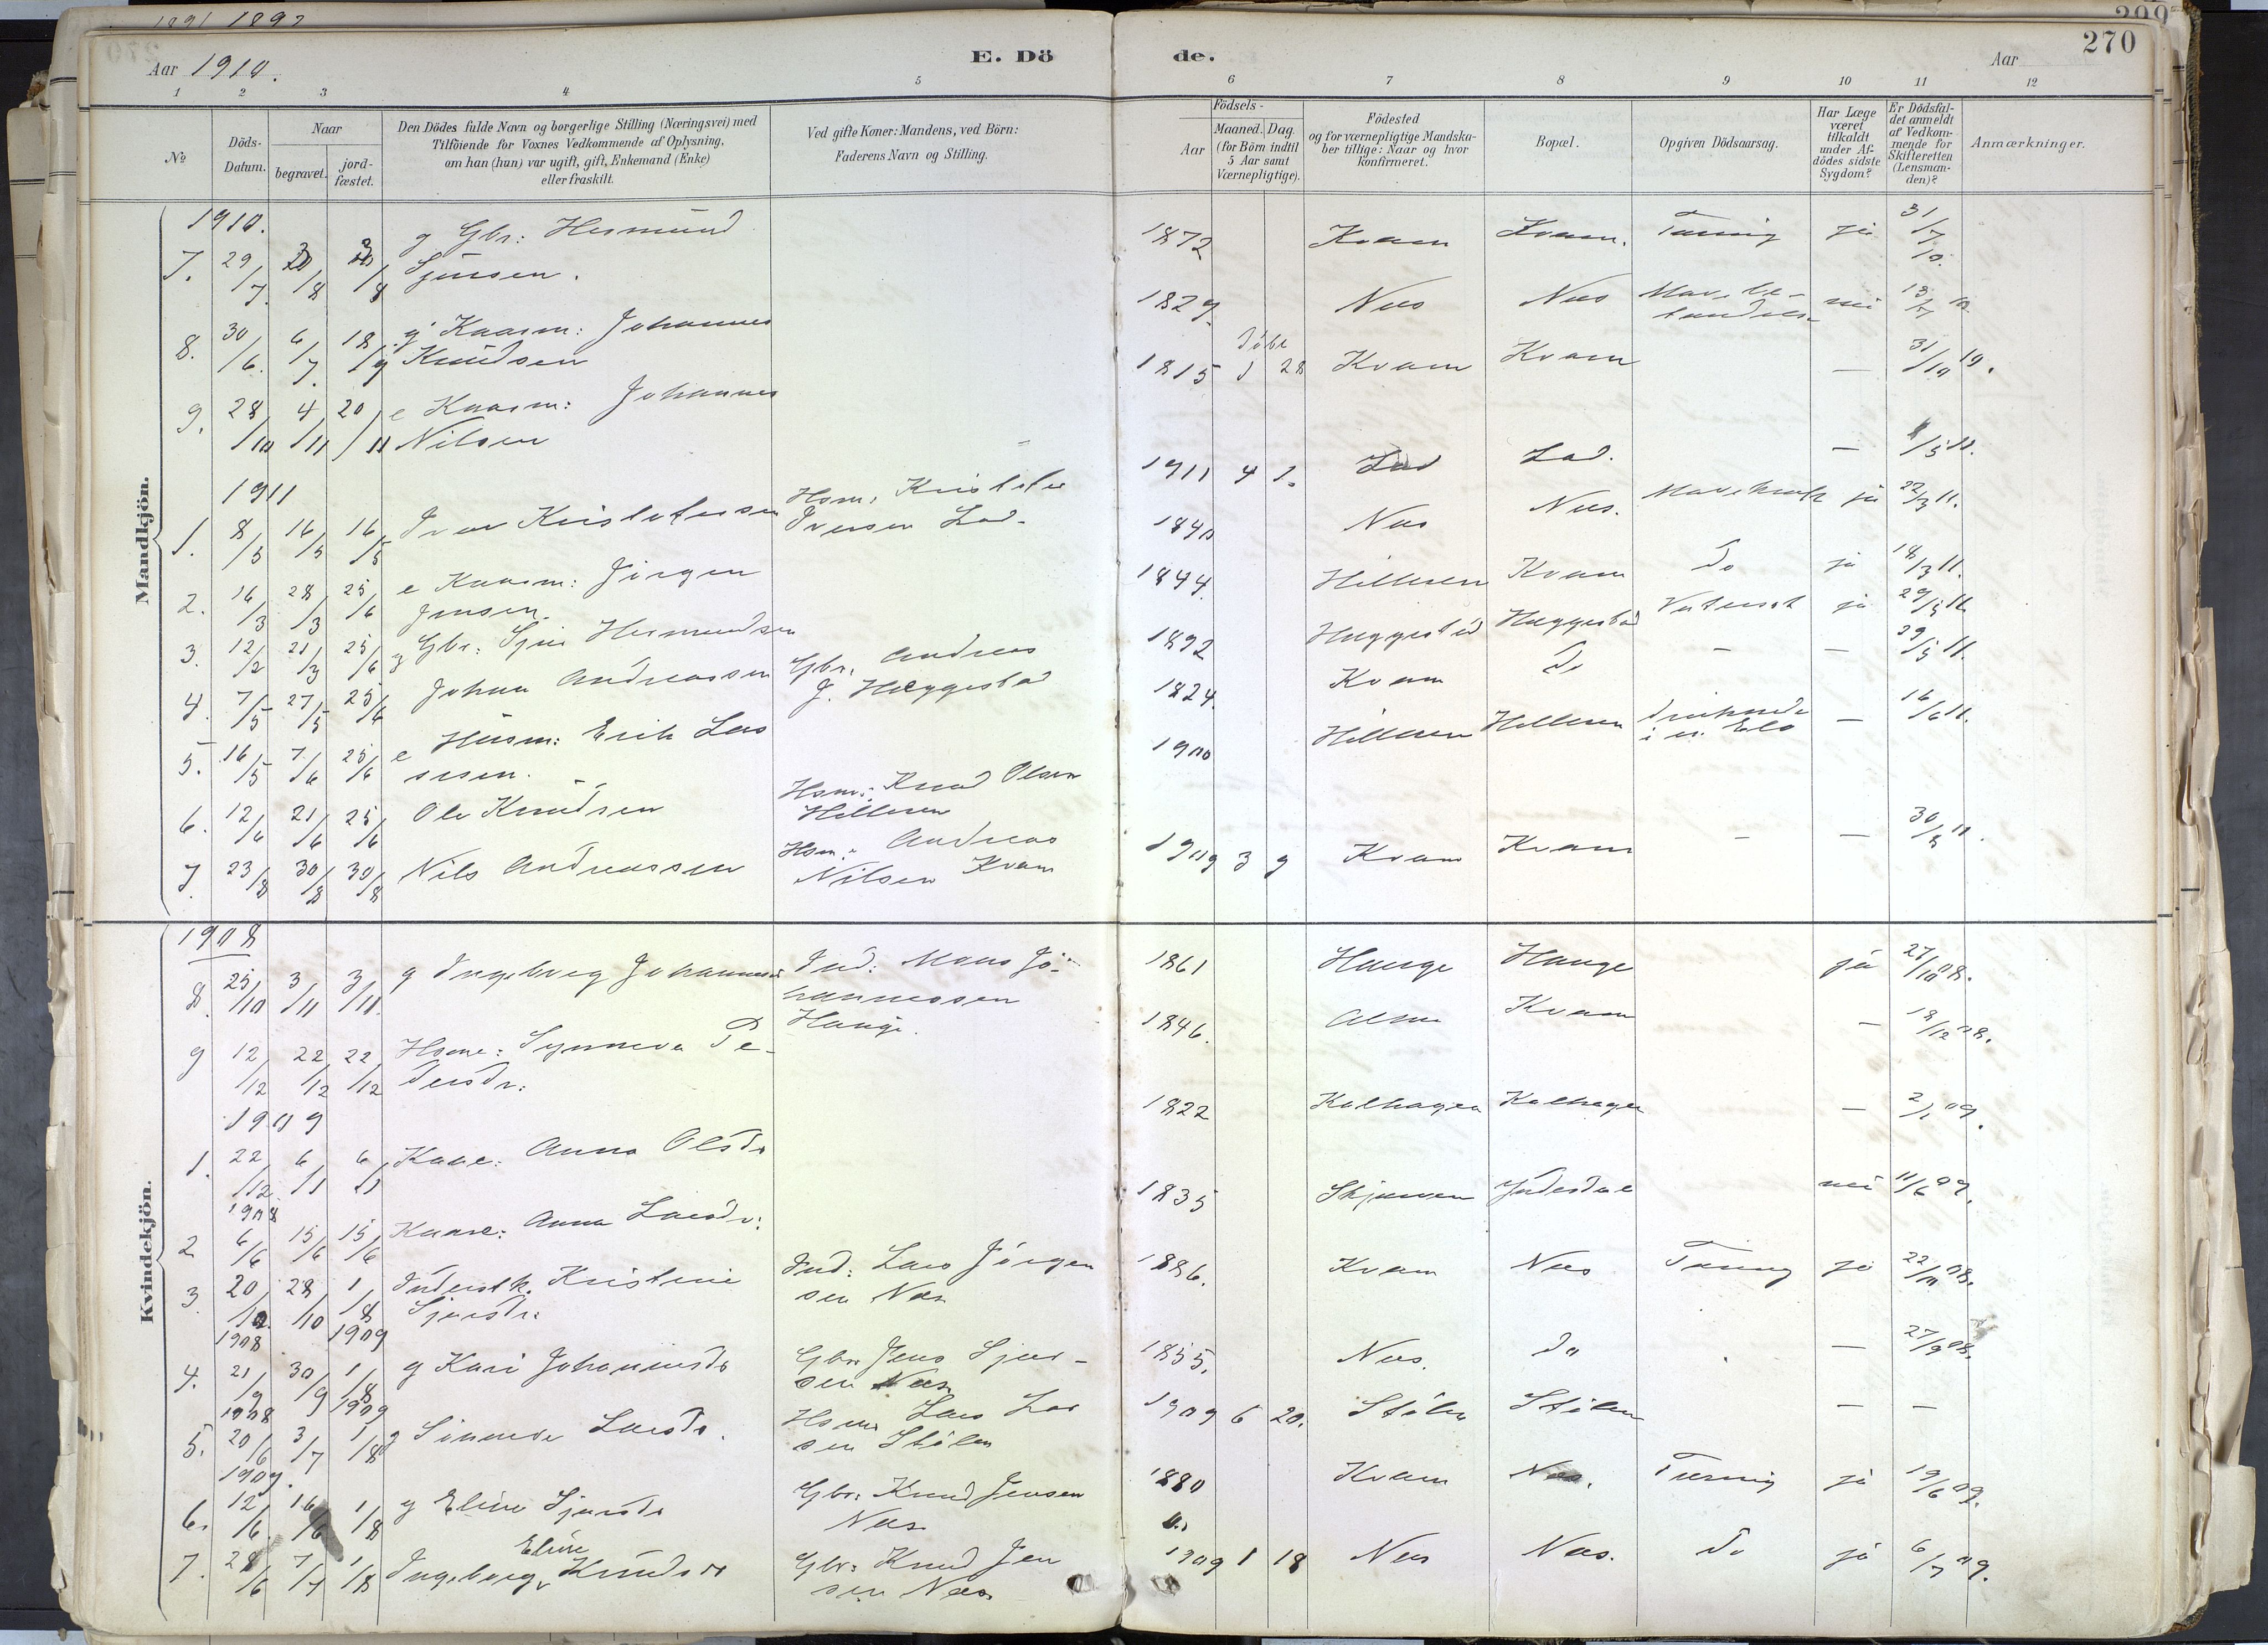 1891 1892
299
270
Aar 1910.
E. Dö
de.
Aar
1 2 3 4 5 6 7 8 9 10 11 12
No
Döds-
Datum.
Naar
begravet.
jord-
fæstet.
Den Dödes fulde Navn og borgerlige Stilling (Næringsvei) med
Tilföiende for Voxnes Vedkommende af Oplysning,
om han (hun) var ugift, gift, Enkemand (Enke)
eller fraskilt.
Ved gifte Koner: Mandens, ved Börn:
Faderens Navn og Stilling.
Födsels-
Aar
Maaned. Dag.
(for Börn indtil
5 Aar samt
Værnepligtige).
Födested
og for værnepligtige Mandska-
ber tillige: Naar og hvor
konfirmeret.
Bopæl.
Opgiven Dödsaarsag.
Har Læge
været
tilkaldt
under Af-
dödes sidste
Sygdom?
Er Dödsfal-
det anmeldt
af Vedkom-
mende for
Skifteretten
(Lensman-
den)?
Anmærkninger.
Mandkjön.
1910.
7. 29/7 /8 /8 g Gbr: Hermund
Sjursen. 1872 Kvam Kvam. Tæring ja 31/7 10.
8. 30/6. 6/7. 18/9 g Kaarm: Johannes
Knudsen 1829. Næs Næs nei
9. 28/10 4/11 20/11 e Kaarm: Johannes
Nilsen döbt
1815 1 28 Kvam Kvam — 31/10 10.
1911
1. 8/5 16/5 16/5 Ivar Kristofersen Hsm: Kristofer
Iversen Lad. 1911 4 1. Lad Lad. — /5 11.
2. 16/3 28/3 25/6 e Kaarm: Jörgen
Jensen. 1840 Næs Næs. Mavekræft ja 22/3 11.
3. 12/2 21/3 25/6 g Gbr: Sjur Hermundsen 1844. Hillesen Kvam Do ja 18/3 11.
4. 7/5 27/5 25/6 Johan Andreassen Gbr. Andreas
J. Hæggestad 1892 Hæggestad Hæggestad ja 29/5 11.
5. 16/5 7/6 25/6 e Husm: Erik Lars
sesen. 1824. Kvam Do — — 29/5 11.
6. 12/6 21/6 25/6 Ole Knudsen Hsm: Knud Olsen
Hillesen 1900 Hillesen Hillesen druknede
i en Elv — 16/6 11.
7. 23/8 30/8 30/8 Nils Andreassen Hsm: Andreas
Nilsen Kvam 1909 3 9 Kvam Kvam — — 30/8 11.
Kvindekjön.
1908
8. 25/10 3/11 3/11. g Ingeborg Johannesd. Ind: Mons Jo-
hannessen
Hauge. 1861 Hauge Hauge ja 27/10 08.
9 12/12 22/12 22/12 Hsme: Synneva Pe-
dersdr: 1846. Kvam — 18/12 08.
1909
1. 22/12 1908 6/1 6/1 Kaae: Anna Olsdr 1822 Kalhagen Kalhagen — 2/1 09.
2 6/6 15/6 15/6 Kaare: Anna Larsdr: 1835 Skjerven Indredal nei 11/6 09.
3. 20/10. 1908 28/10 1/8 1909 Inderstk. Kristine
Sjursdr: Ind: Lars Jörgen
sen Næs 1886. Kvam Næs Tæring ja 22/10 08.
4. 21/9 1908 30/9 1/8 1909 g Kari Johannesdr Gbr: Jens Sjur-
sen Næs 1855. Næs. Do — 27/9 08.
5. 20/6 1909. 3/7 1/8 Sinneve Larsdr. Hsm: Lars Lar
sen Stölen 1909 6 20. Stölen Stölen — —
6. 12/6. 16/6 1/8 g Eline Sjursdr Gbr: Knud Jensen
Næs 1880 Kvam Næs. Tæring ja 19/6 09.
7. 28/6 7/7 1/8 Ingeborg Eline Knudsdr Gbr: Knud Jen
sen Næs 1909 1 18 Næs Næs. Do ja 6/7 09.